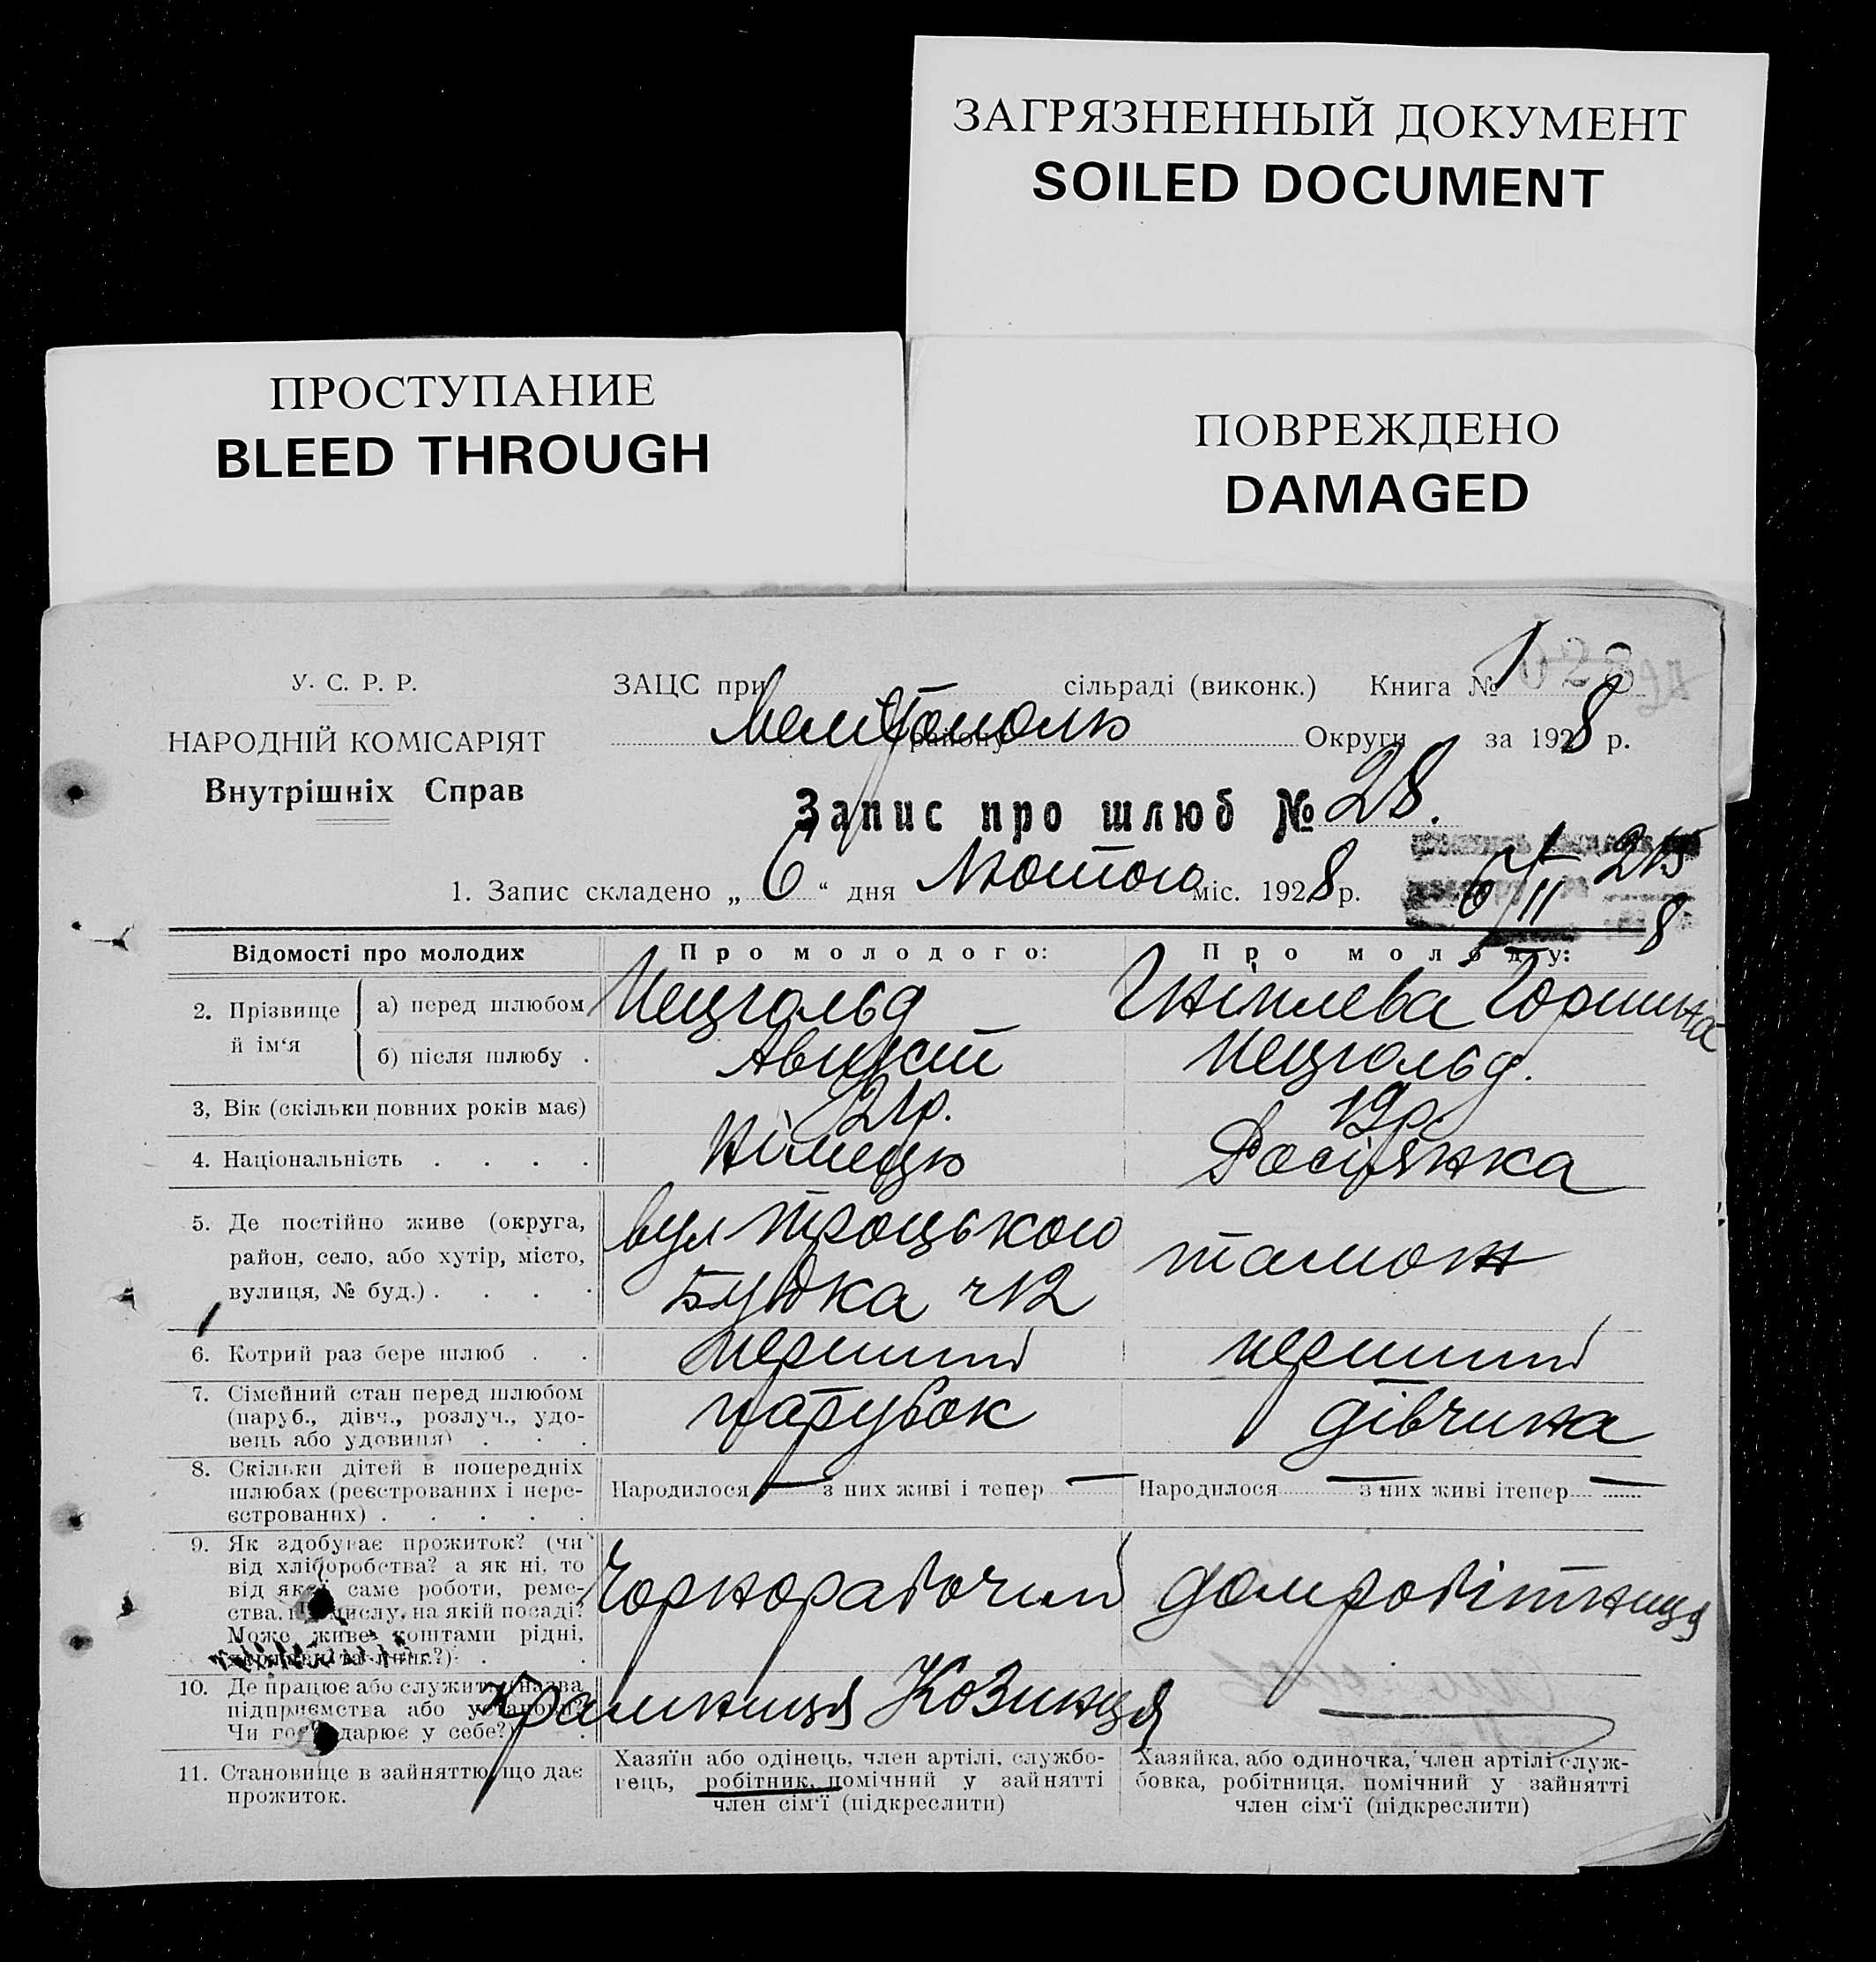 ЗАГРЯЗНЕННЫЙ ДОКУМЕНТ
SOILED DOCUMENT
ПРОСТУПАНИЕ
BLEED THROUGH
ПОВРЕЖДЕНО
DAMAGED
У. С. Р. Р.
НАРОДНІЙ КОМІСАРІЯТ
Внутрішніх Справ
ЗАЦС при сільраді (виконк.) Книга № 1
Мелітополь району Округи за 1928 р.
Запис про шлюб № 28.
1. Запис складено „ 6 “ дня Лютого міс. 1928 р.
6/II 8
Відомості про молодих
Про молодого:
Про молоду:
2. Прізвище й ім‘я
а) перед шлюбом
Мецгольд
Горпина
б) після шлюбу .
Август
Мецгольд.
3, Вік (скільки повних років має)
21р.
19р.
4. Національність . . . .
Німець
Росіянка
5. Де постійно живе (округа,
район, село, або хутір, місто,
вулиця, № буд.) . . . .
вул Троцького
Будка ч12
тамож
6. Котрий раз бере шлюб . .
перший
перший
7. Сімейний стан перед шлюбом
(паруб., дівч., розлуч., удо-
вець або удовиця) . . .
парубок
дівчина
8. Скільки дітей в попередніх
шлюбах (реєстрованих і нере-
єстрованих) . . . . .
Народилося — з них живі і тепер —
Народилося — з них живі ітепер —
9. Як здобуває прожиток? (чи
від хліборобства? а як ні, то
від якої саме роботи, реме-
ства, промислу, на якій посаді?
Може живе коштами рідні,
Чорнорабочий
домробітниця
10. Де працює або служить (назва
підприємства або установи?
Чи господарює у себе?) .
крамниця Козинця
—
11. Становище в зайняттю, що дає
прожиток.
Хазяїн або одінець, член артілі, службо-
вець, робітник, помічний у зайнятті
член сім‘ї (підкреслити)
Хазяйка, або одиночка, член артілі служ-
бовка, робітниця, помічний у зайнятті
член сім‘ї (підкреслити)